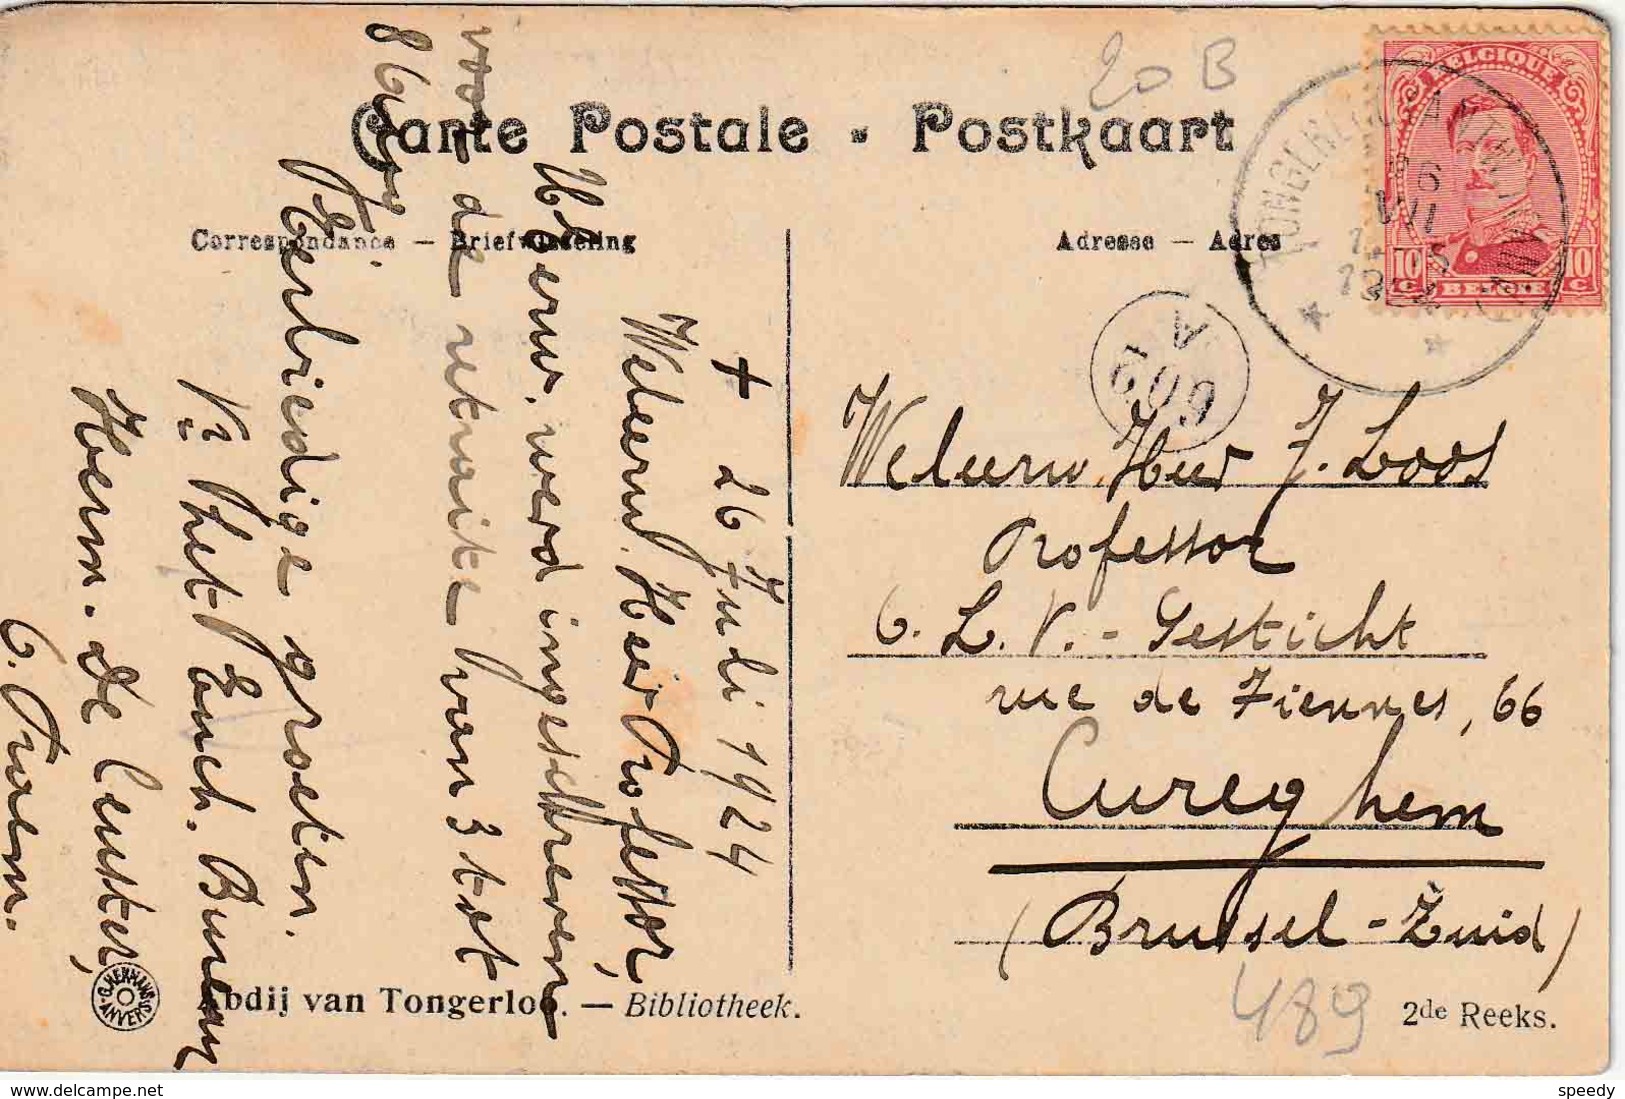 20 B
Carte Postale - Postkaart
Correspondance — Briefwisseling
Adresse — Adres
BELGIQUE
10 C BELGIË 10 C
TONGERLOO
1924
A
609
+ 26 Juli 1924
Weleerw. Heer Professor,
Uw Eerw. werd ingeschreven
voor de retraite van 3 tot
8 Aug.
Eerbiedige groeten.
Fr
Herm. de Ceuster,
O. Praem.
Weleerw. Heer J. Loos
Professor
O. L. V. - Gesticht
rue de Fiennes, 66
Cureghem
(Brussel - Zuid)
489
G. HERMANS ANVERS
Abdij van Tongerloo. — Bibliotheek.
2de Reeks.
www.delcampe.net
speedy